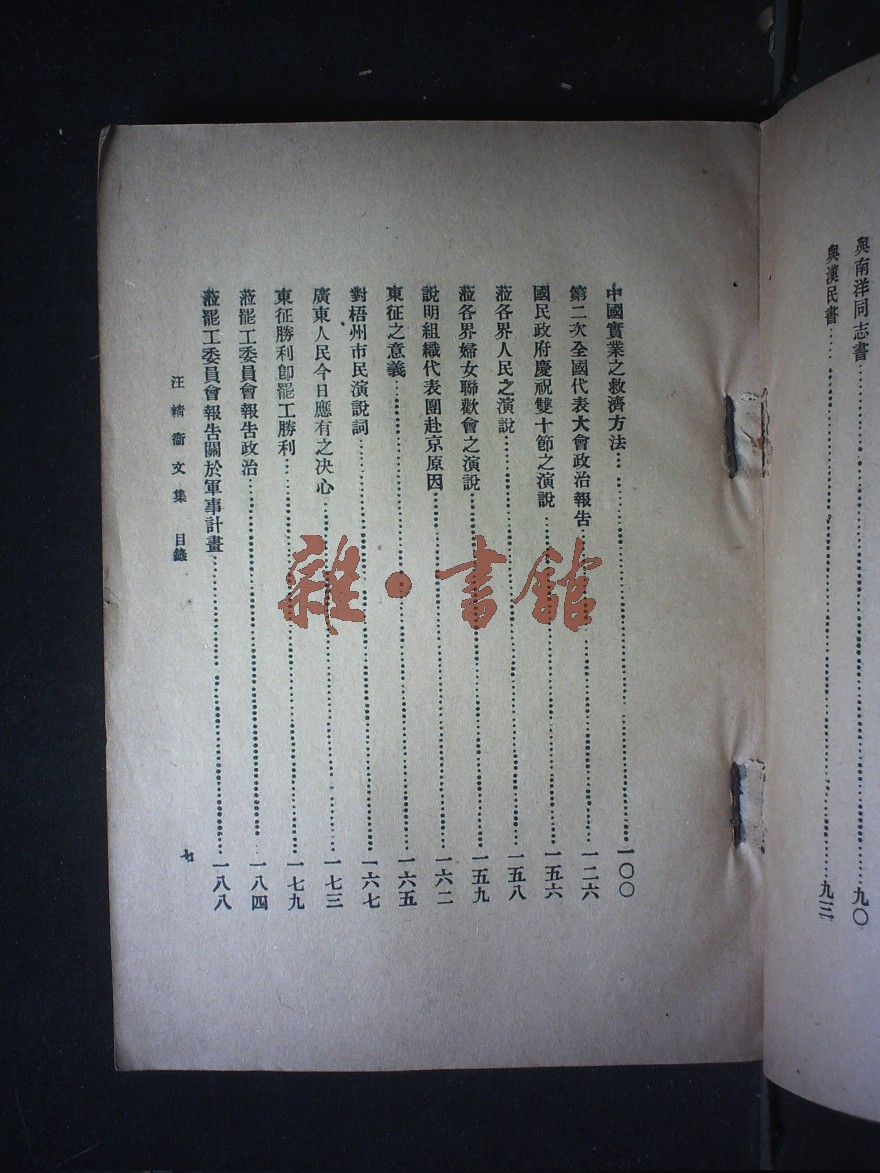 與南洋同志書……九〇
與漢民書……九三
中國實業之救濟方法……一〇〇
第二次全國代表大會政治報告……一二六
國民政府慶祝雙十節之演說……一五六
蒞各界人民之演說……一五八
蒞各界婦女聯歡會之演說……一五九
說明組織代表團赴京原因……一六二
東征之意義……一六五
對梧州市民演說詞……一六七
廣東人民今日應有之决心……一七三
東征勝利卽罷工勝利……一七九
蒞罷工委員會報告政治……一八四
蒞罷工委員會報告關於軍事計畫……一八八
汪精衞文集 目錄
七
雜·書館